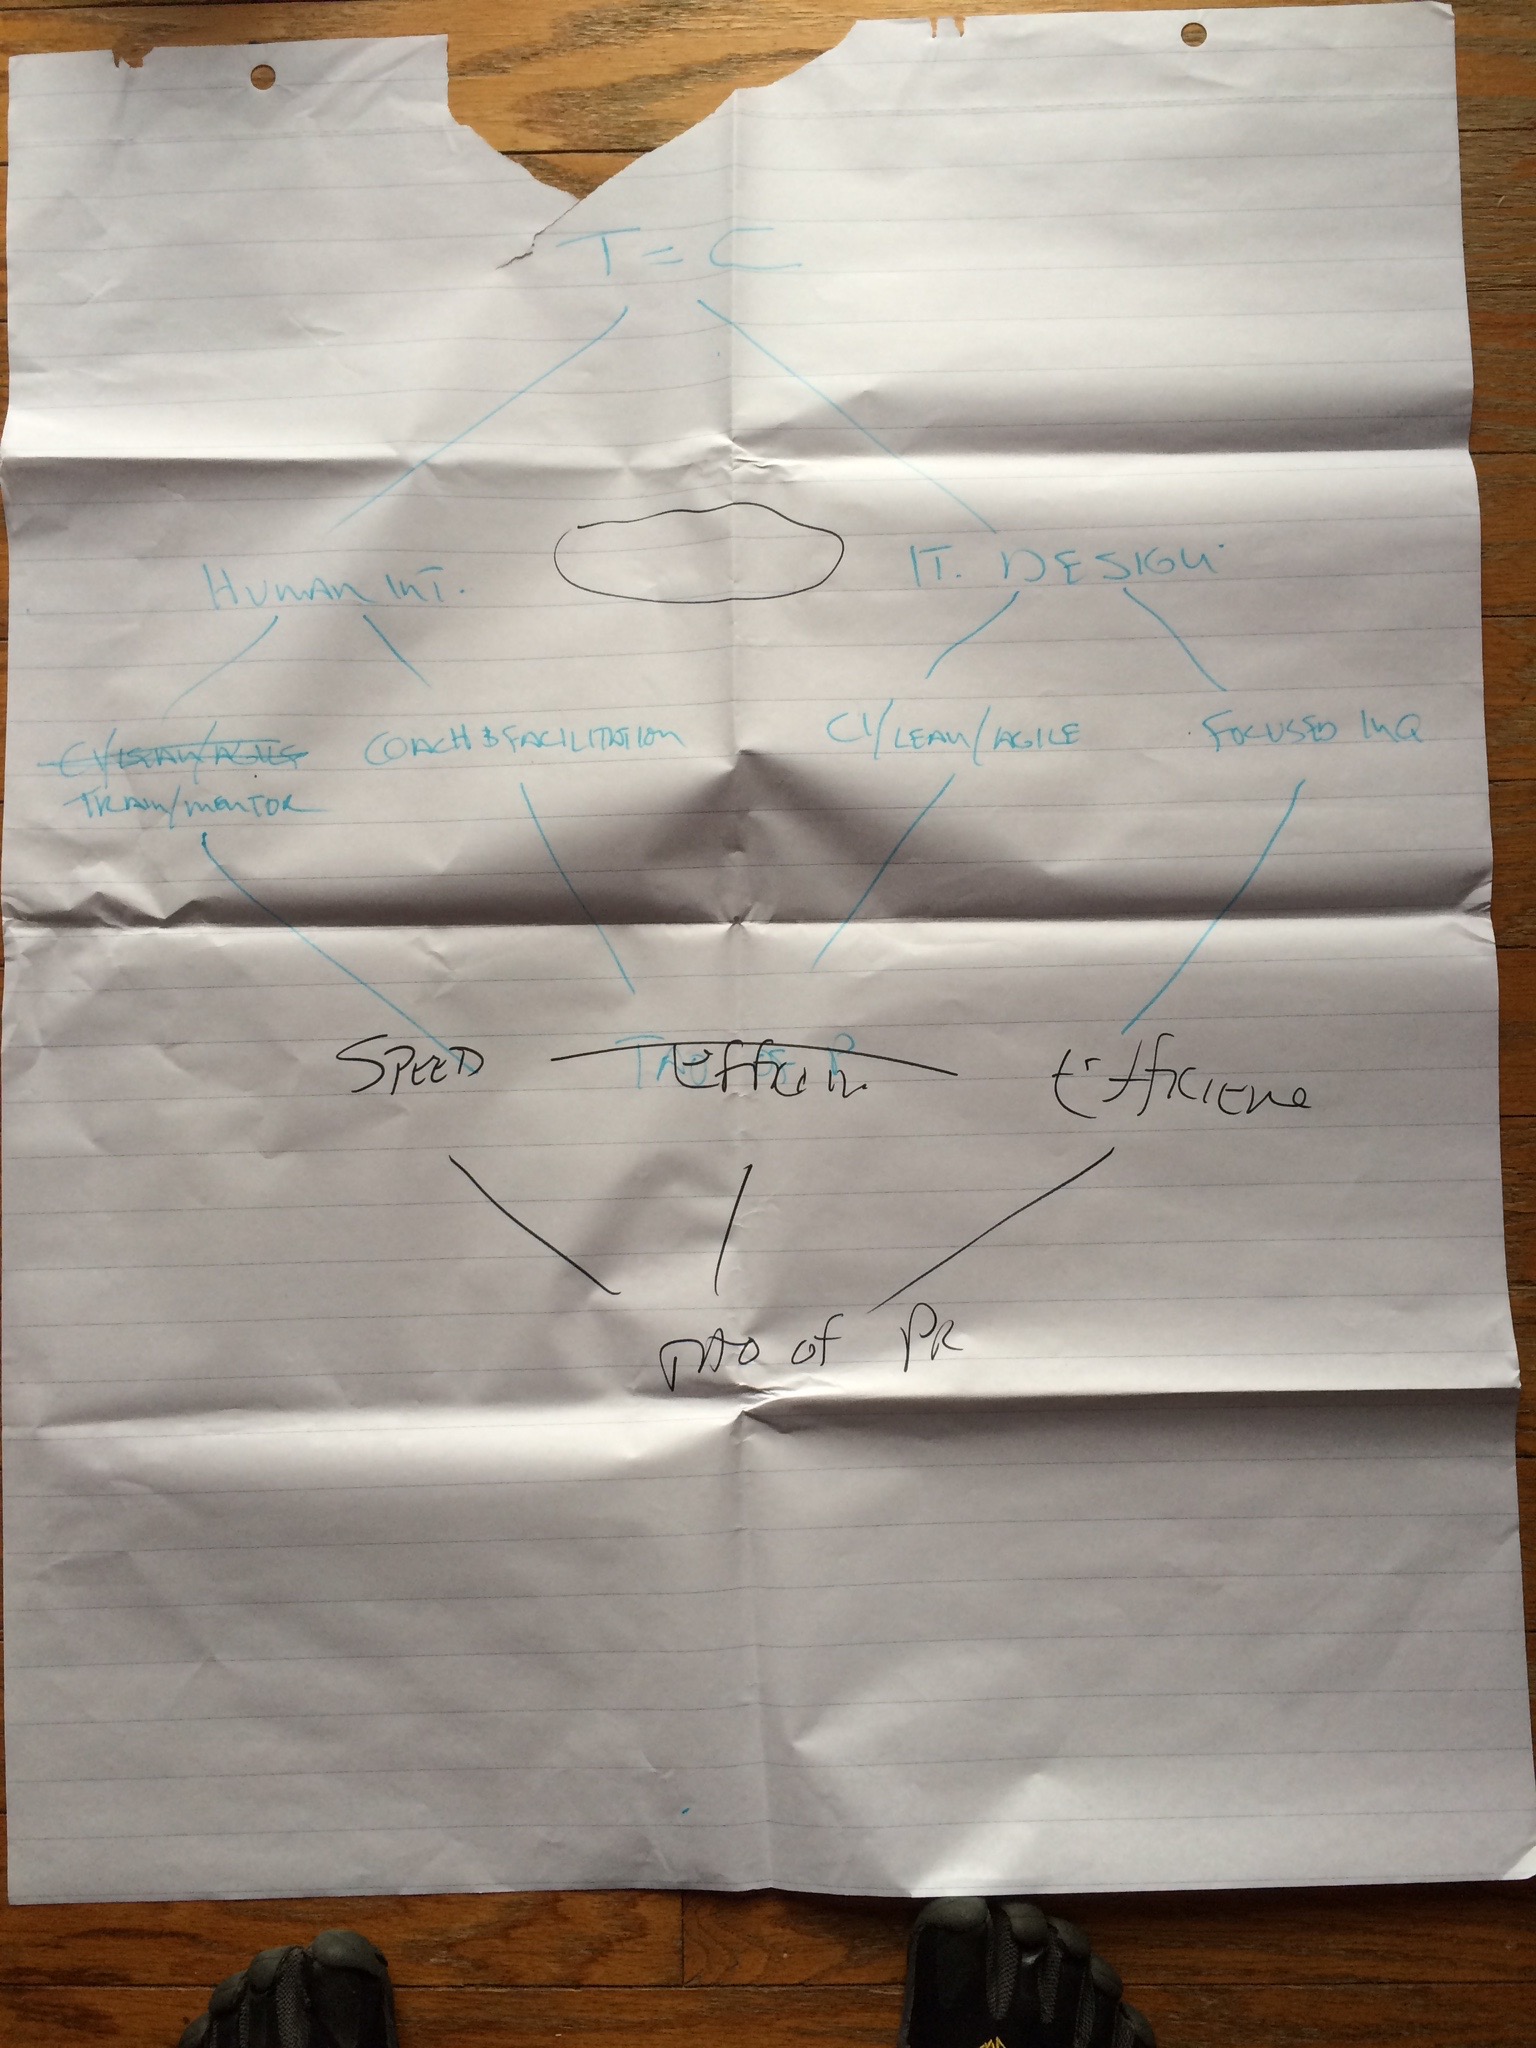 T = C
HUMAN INT.
IT. DESIGN
CI/LEAN/AGILE
TRAIN/MENTOR
COACH & FACILITATION
CI/LEAN/AGILE
FOCUSED INQ
SPEED
TAO OF P
Efficiene
TAO of PR